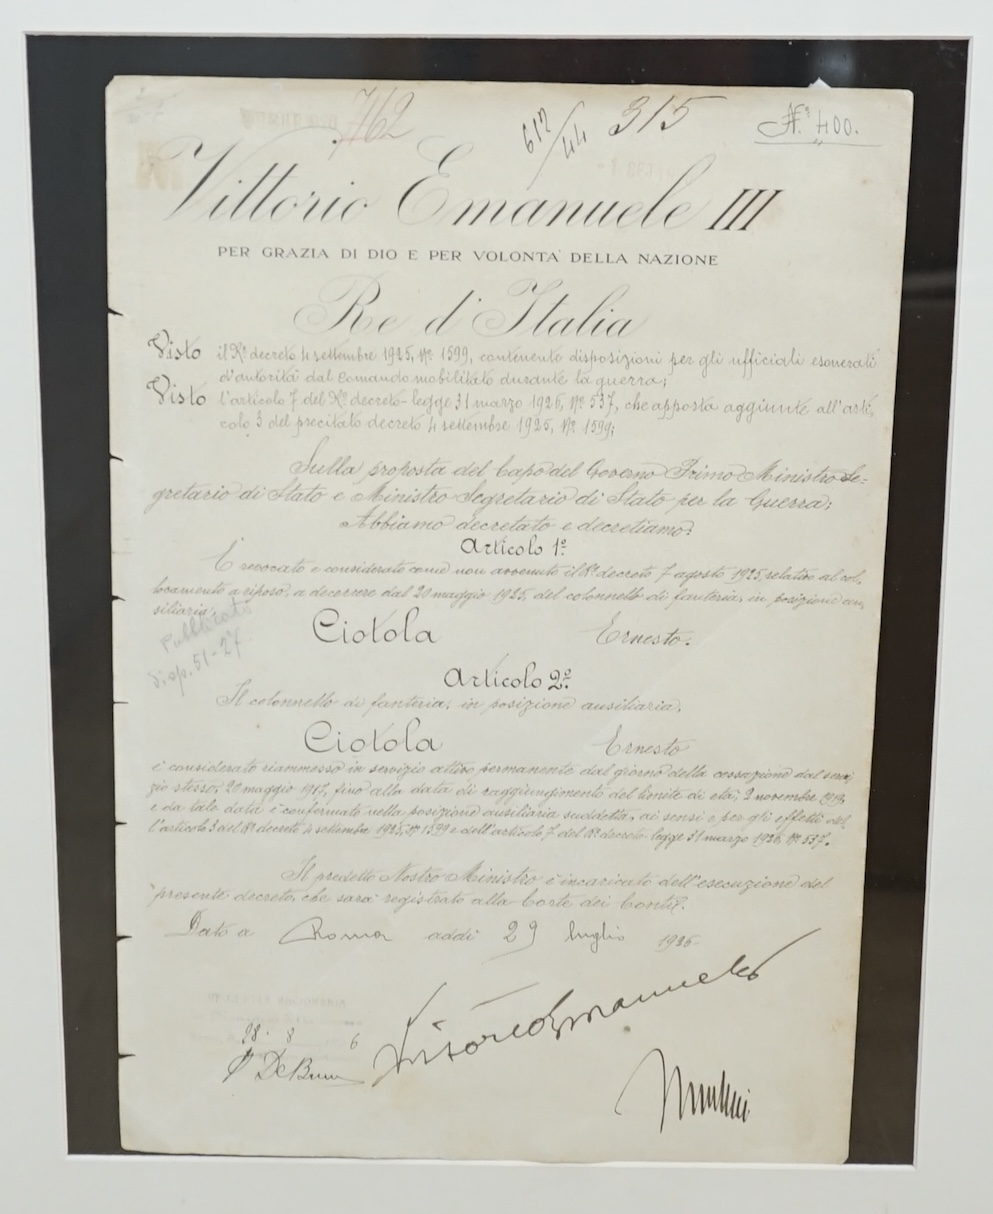 762
612/44
315
N.º 400.
Vittorio Emanuele III
PER GRAZIA DI DIO E PER VOLONTA' DELLA NAZIONE
Re d'Italia
Visto il R.º decreto 4 settembre 1925, Nº 1599, contenente disposizioni per gli ufficiali esonerati
d'autorità dal comando mobilitato durante la guerra;
Visto l'articolo 7 del R.º decreto-legge 31 marzo 1926, Nº 537, che apporta aggiunte all'arti,
colo 3 del precitato decreto 4 settembre 1925, Nº 1599;
Sulla proposta del Capo del Governo Primo Ministro Se=
gretario di Stato e Ministro Segretario di Stato per la Guerra;
Abbiamo decretato e decretiamo:
Articolo 1º
È revocato e considerato come non avvenuto il R.º decreto 7 agosto 1925, relativo al col,
locamento a riposo, a decorrere dal 20 maggio 1925, del colonnello di fanteria, in posizione au,
siliaria:
Pubblicato
disp. 51-27
Ciotola Ernesto.
Articolo 2º
Il colonnello di fanteria, in posizione ausiliaria,
Ciotola Ernesto
è considerato riammesso in servizio attivo permanente dal giorno della cessazione dal servi,
zio stesso, 20 maggio 1917, fino alla data di raggiungimento del limite di età, 2 novembre 1919,
e da tale data è confermato nella posizione ausiliaria suddetta, ai sensi e per gli effetti del,
l'articolo 3 del R.º decreto 4 settembre 1925, Nº 1599 e dell'articolo 7 del R.º decreto-legge 31 marzo 1926, Nº 537.
Il predetto Nostro Ministro è incaricato dell'esecuzione del
presente decreto, che sarà registrato alla Corte dei Conti.
Dato a Roma addì 29 luglio 1926
Vittorio Emanuele
28. 8 6
Mussolini